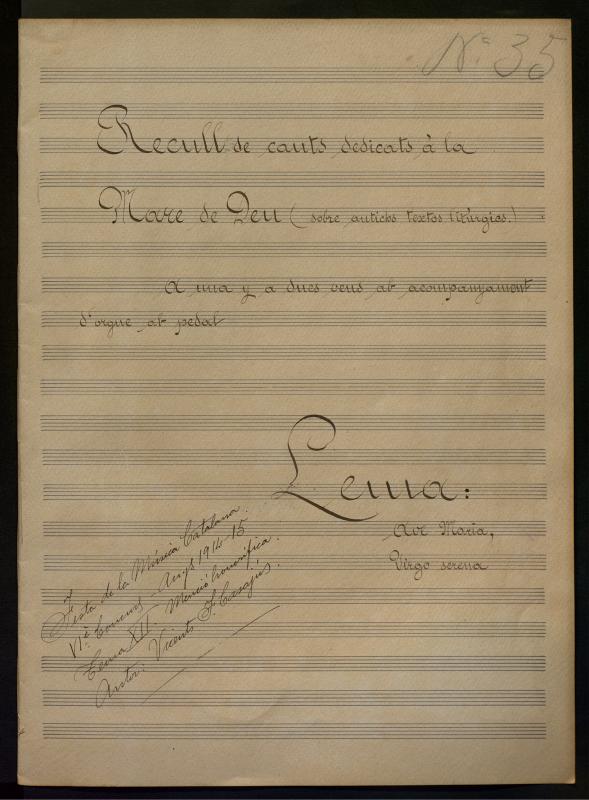 Nº 35
Recull de cants dedicats à la
Mare de Deu (sobre antichs textos litúrgics.)
A una y a dues veus ab acompanyament
d'orgue ab pedal
Lema:
Ave Maria,
Virgo serena
Festa de la Música Catalana.
VIè Concurs - Anys 1914-15
Tema XII. Menció honorífica.
Autor: Vicents F. Casajús.